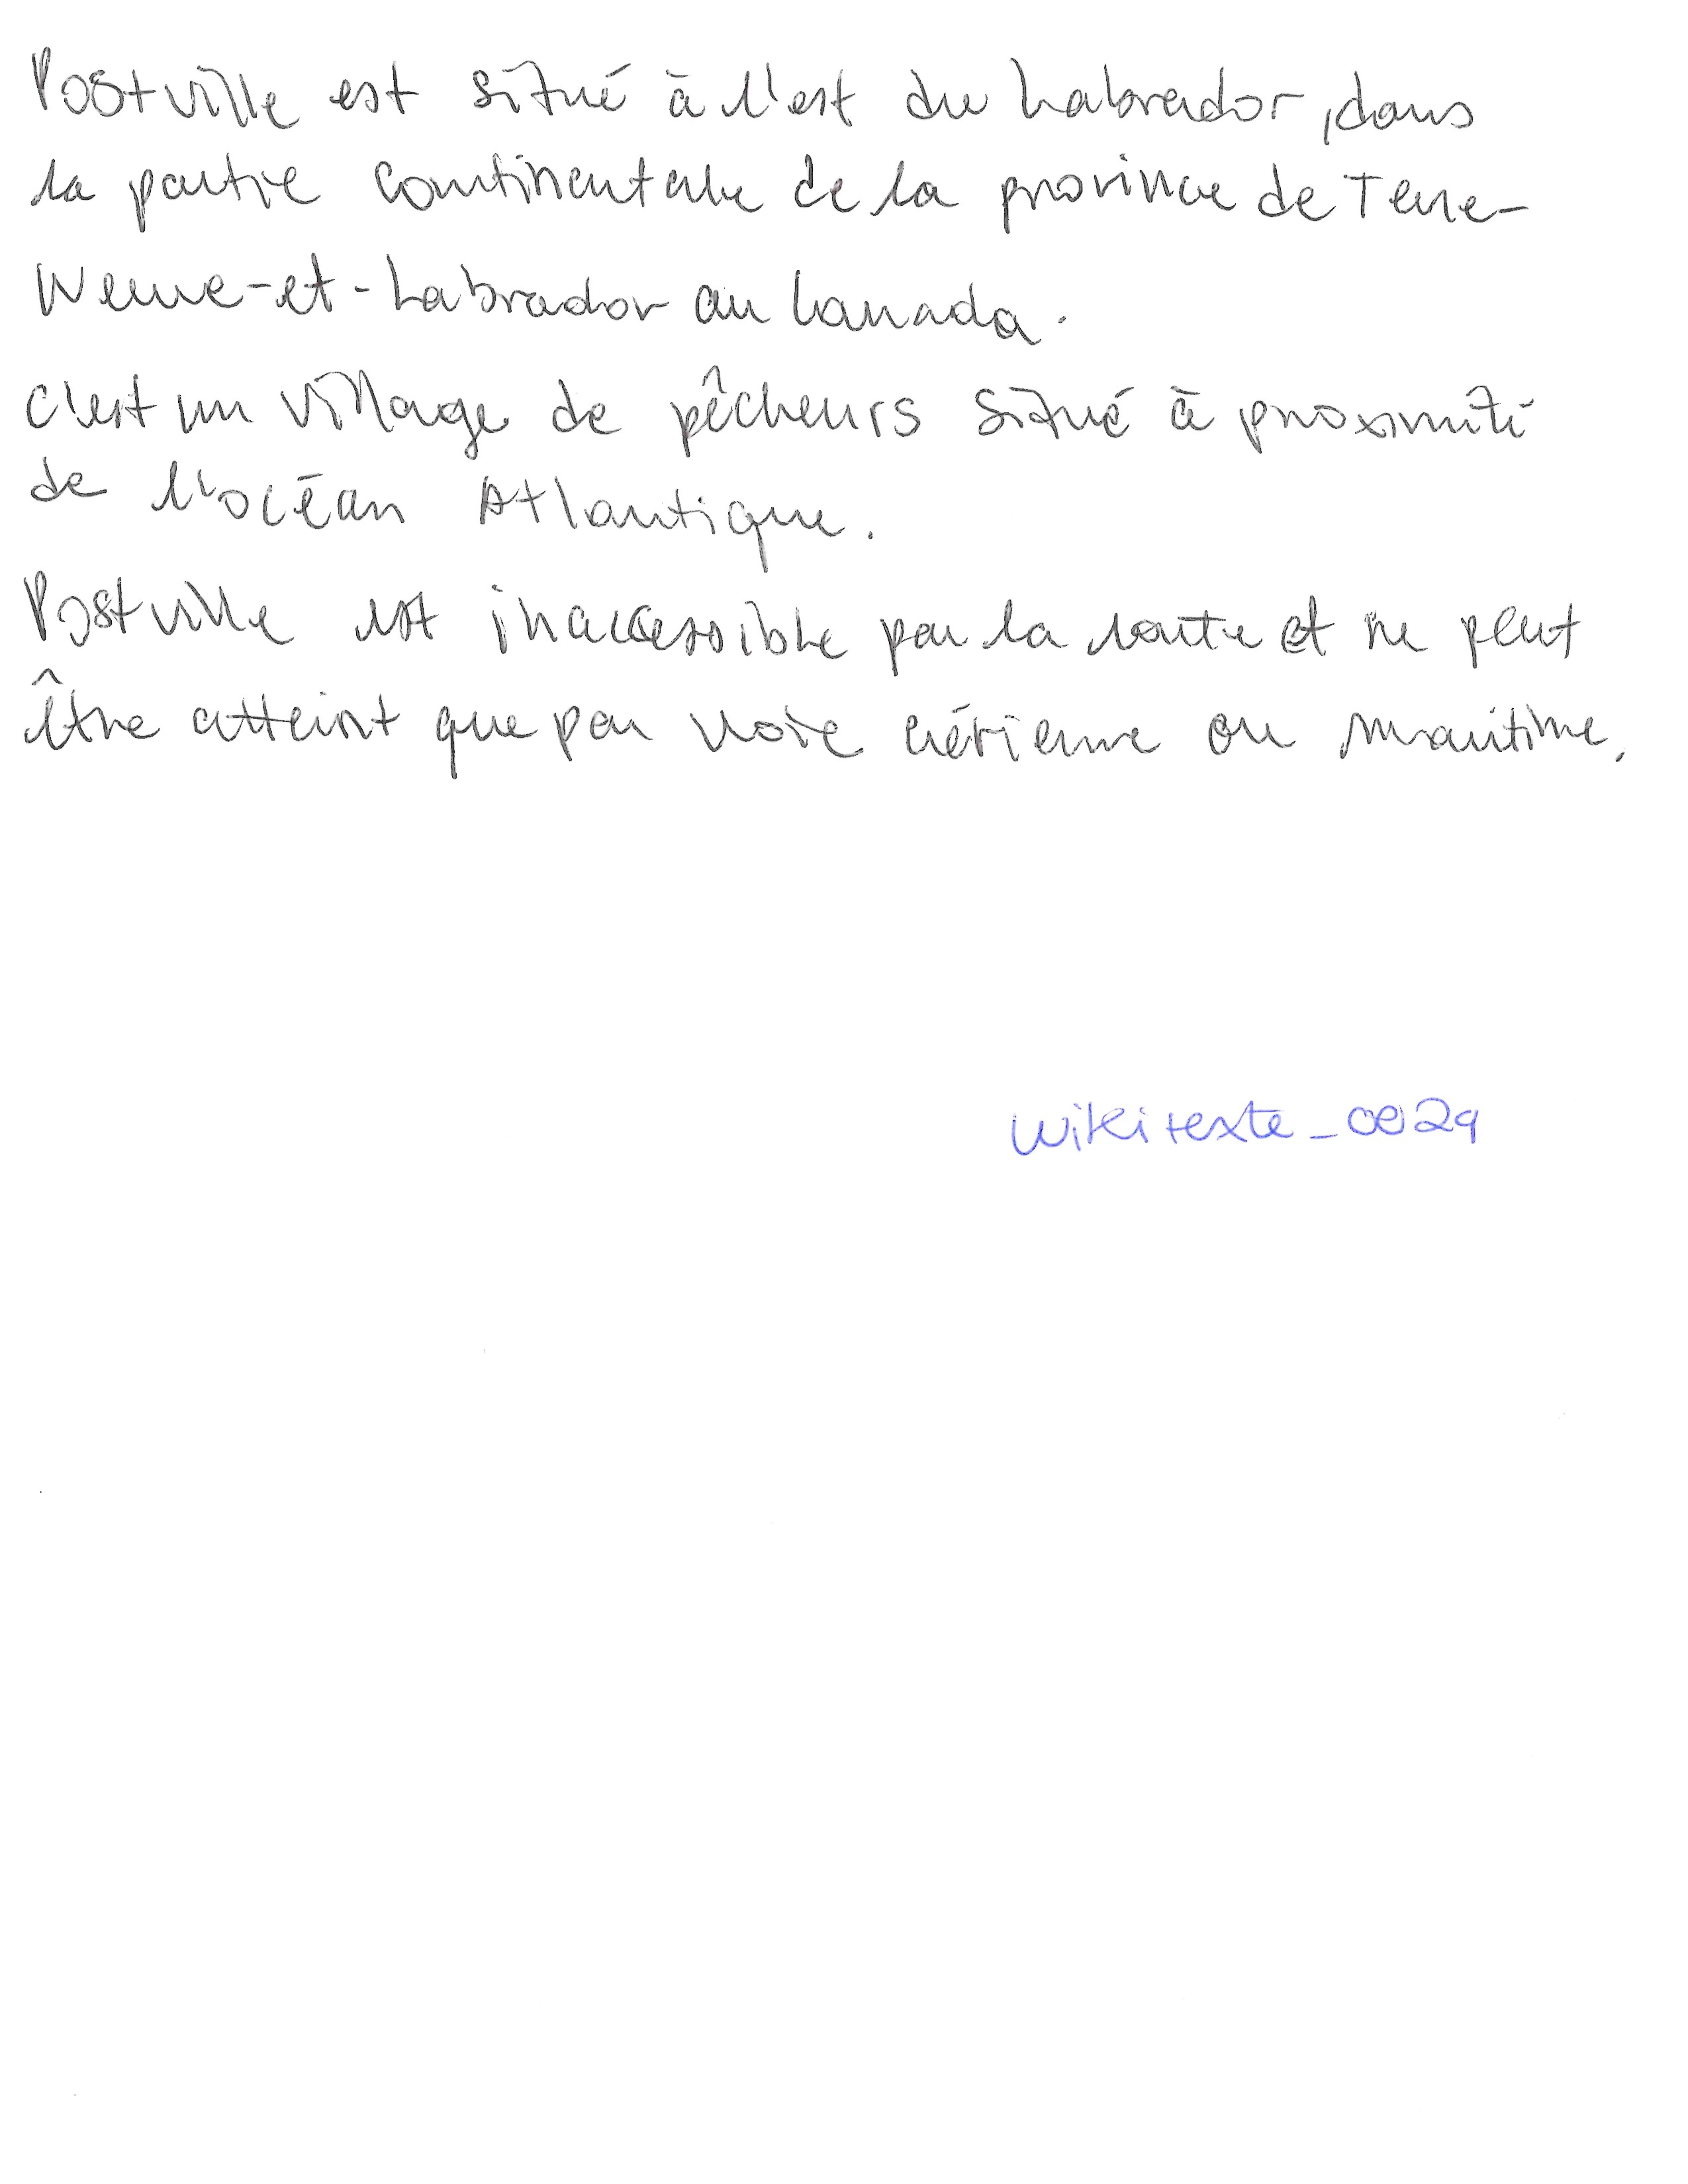 Postville est situé à l'est du Labrador, dans
la partie continentale de la province de Terre-
Neuve-et-Labrador au Canada.
C'est un village de pêcheurs situé à proximité
de l'océan Atlantique.
Postville est inaccessible par la route et ne peut
être atteint que par voie aérienne ou maritime.
wikitexte_0029